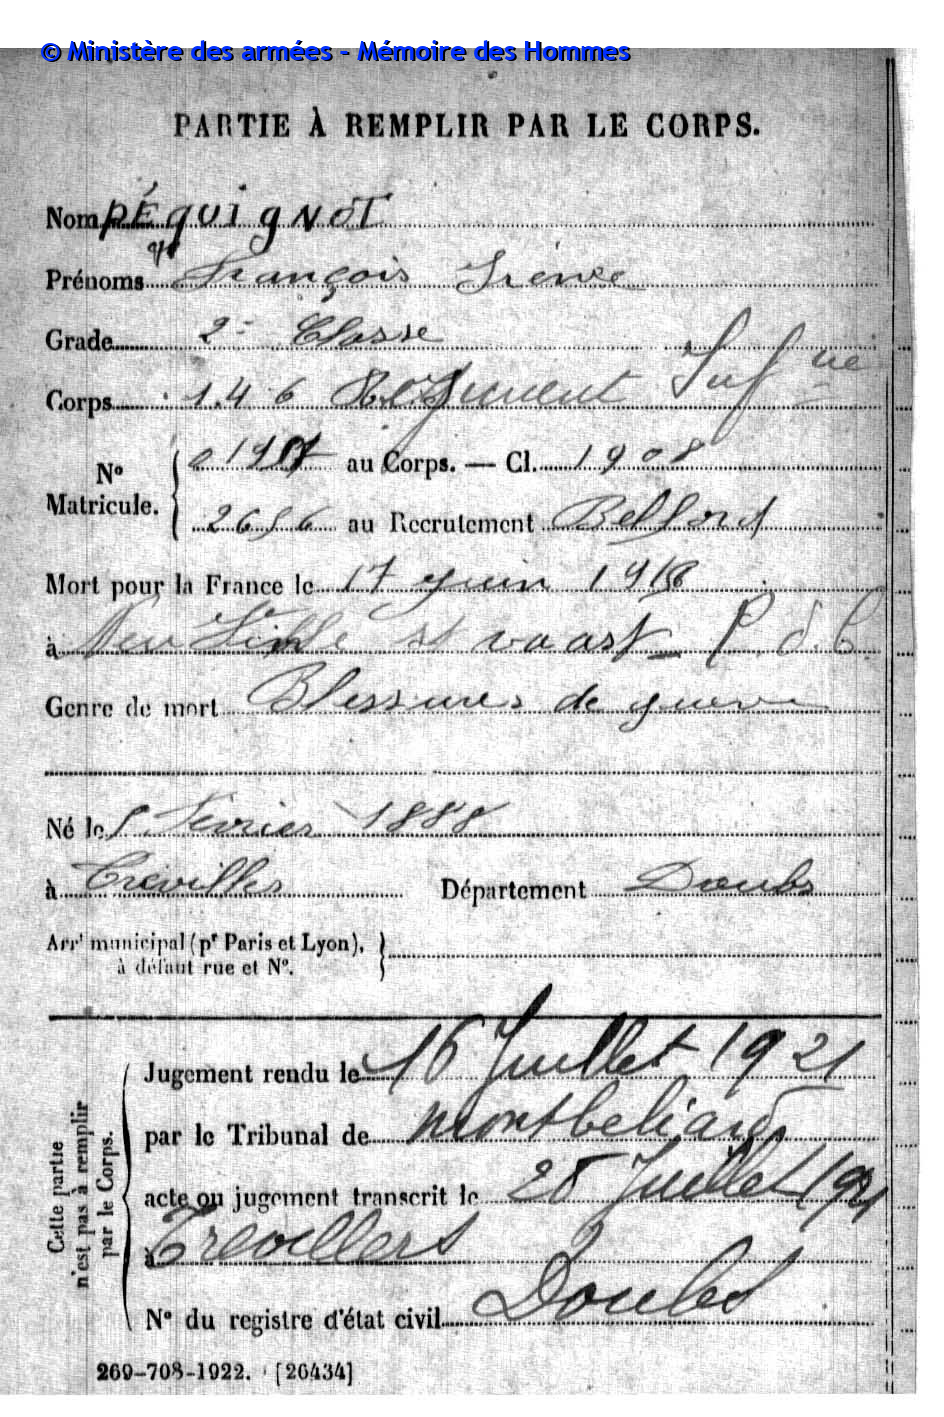 © Ministère des armées - Mémoire des Hommes
PARTIE À REMPLIR PAR LE CORPS.
Nom PÉQUIGNOT
Prénoms François Irénée
Grade 2e Classe
Corps 146 Régiment Inf rie
No Matricule. 01987 au Corps. — Cl. 1908
2656 au Recrutement Belford
Mort pour la France le 17 juin 1916
à Neuville St vaast P. d. C.
Genre de mort Blessures de guerre
Né le février 1888
à Trévillers Département Doubs
Arrt municipal (pr Paris et Lyon),
à défaut rue et No.
Jugement rendu le 16 Juillet 1921
par le Tribunal de Montbeliard
acte ou jugement transcrit le 28 Juillet 1921
à Trevillers
No du registre d'état civil Doubs
Cette partie
n'est pas à remplir
par le Corps.
269-708-1922. [26434]